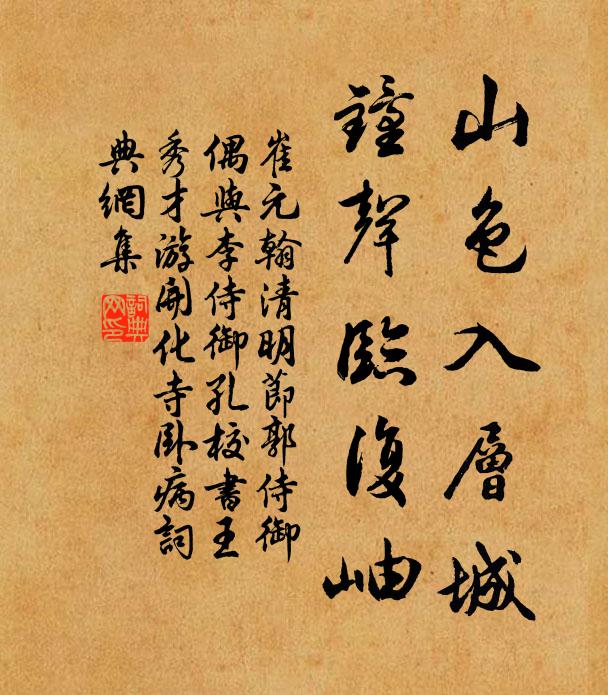 山色入層城
鐘聲臨復岫
崔元翰清明節郭侍御
偶與李侍御孔校書王
秀才游開化寺卧病詞
典網集
詞典網印